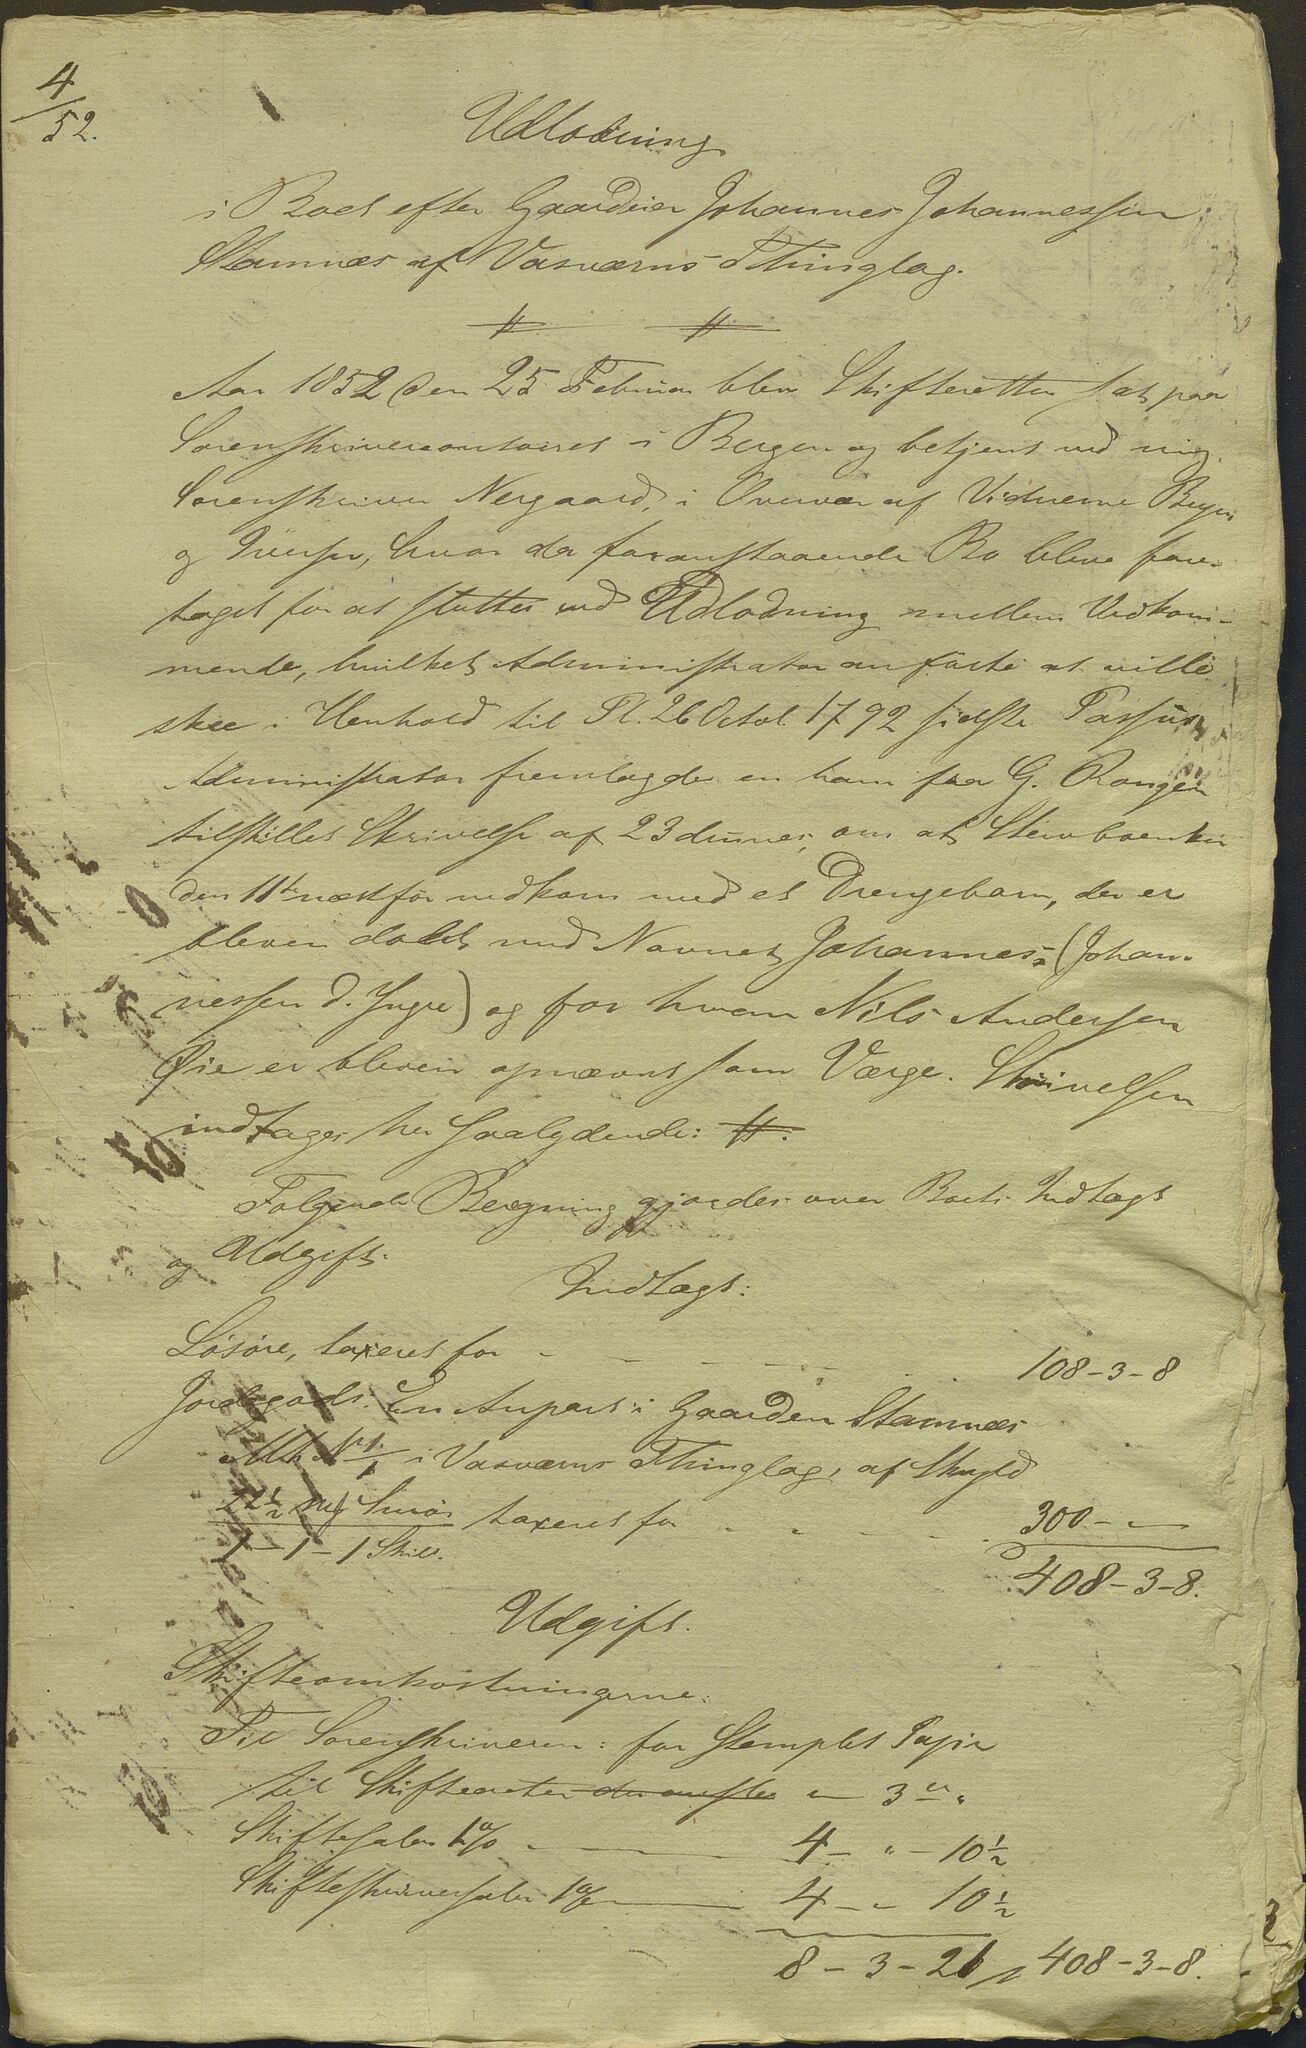 4/52.
Udlodning
i Boet efter Gaardeier Johannes Johannessen
Stamnæs af Vosværns Thinglag.
Aar 1852 den 25 Februar blev Skifteretten sat paa
Sorenskrivercontoiret i Bergen og betjent ved mig
Sorenskriver Nergaard, i Overvær af Vidnerne Beyer
og Iversen, hvor da foranstaaende Bo blev fore-
taget for at sluttes ved Udlodning mellem Vedkom-
mende, hvilket Administrator anførte at ville
skee i Henhold til Pl. 26 Octob. 1792 sidste Passus
Administrator fremlagde en ham fra G. Rongen
tilstillet Skrivelse af 23 dennes, om at Stervboenken
den 11te næstfør nedkom med et Drengebarn, der er
bleven døbt med Navnet Johannes (Johan-
nessen d. Yngre) og for hvem Nils Andersen
Øie er bleven opnævnt som Værge. Skrivelsen
indtages her saalydende: #.
Følgende Beregning gjordes over Boets Indtægt
og Udgift.
Indtægt:
Løsøre, taxeret for 108-3-8
Jordegods: En Anpart i Gaarden Stamnæs
Mtr. No 1/1 i Vosværns Thinglag, af Skyld
22½ mk Smør taxeret for 300- -
1-1-1 Skill.
408-3-8.
Udgift.
Skifteomkostningerne:
Til Sorenskriveren: for Stemplet Papir
til Skifteacten 3 " "
Skiftesalær 1% 4- " -10½
Skifteskriversalær 1% 4- - 10½
8-3-21 408-3-8.